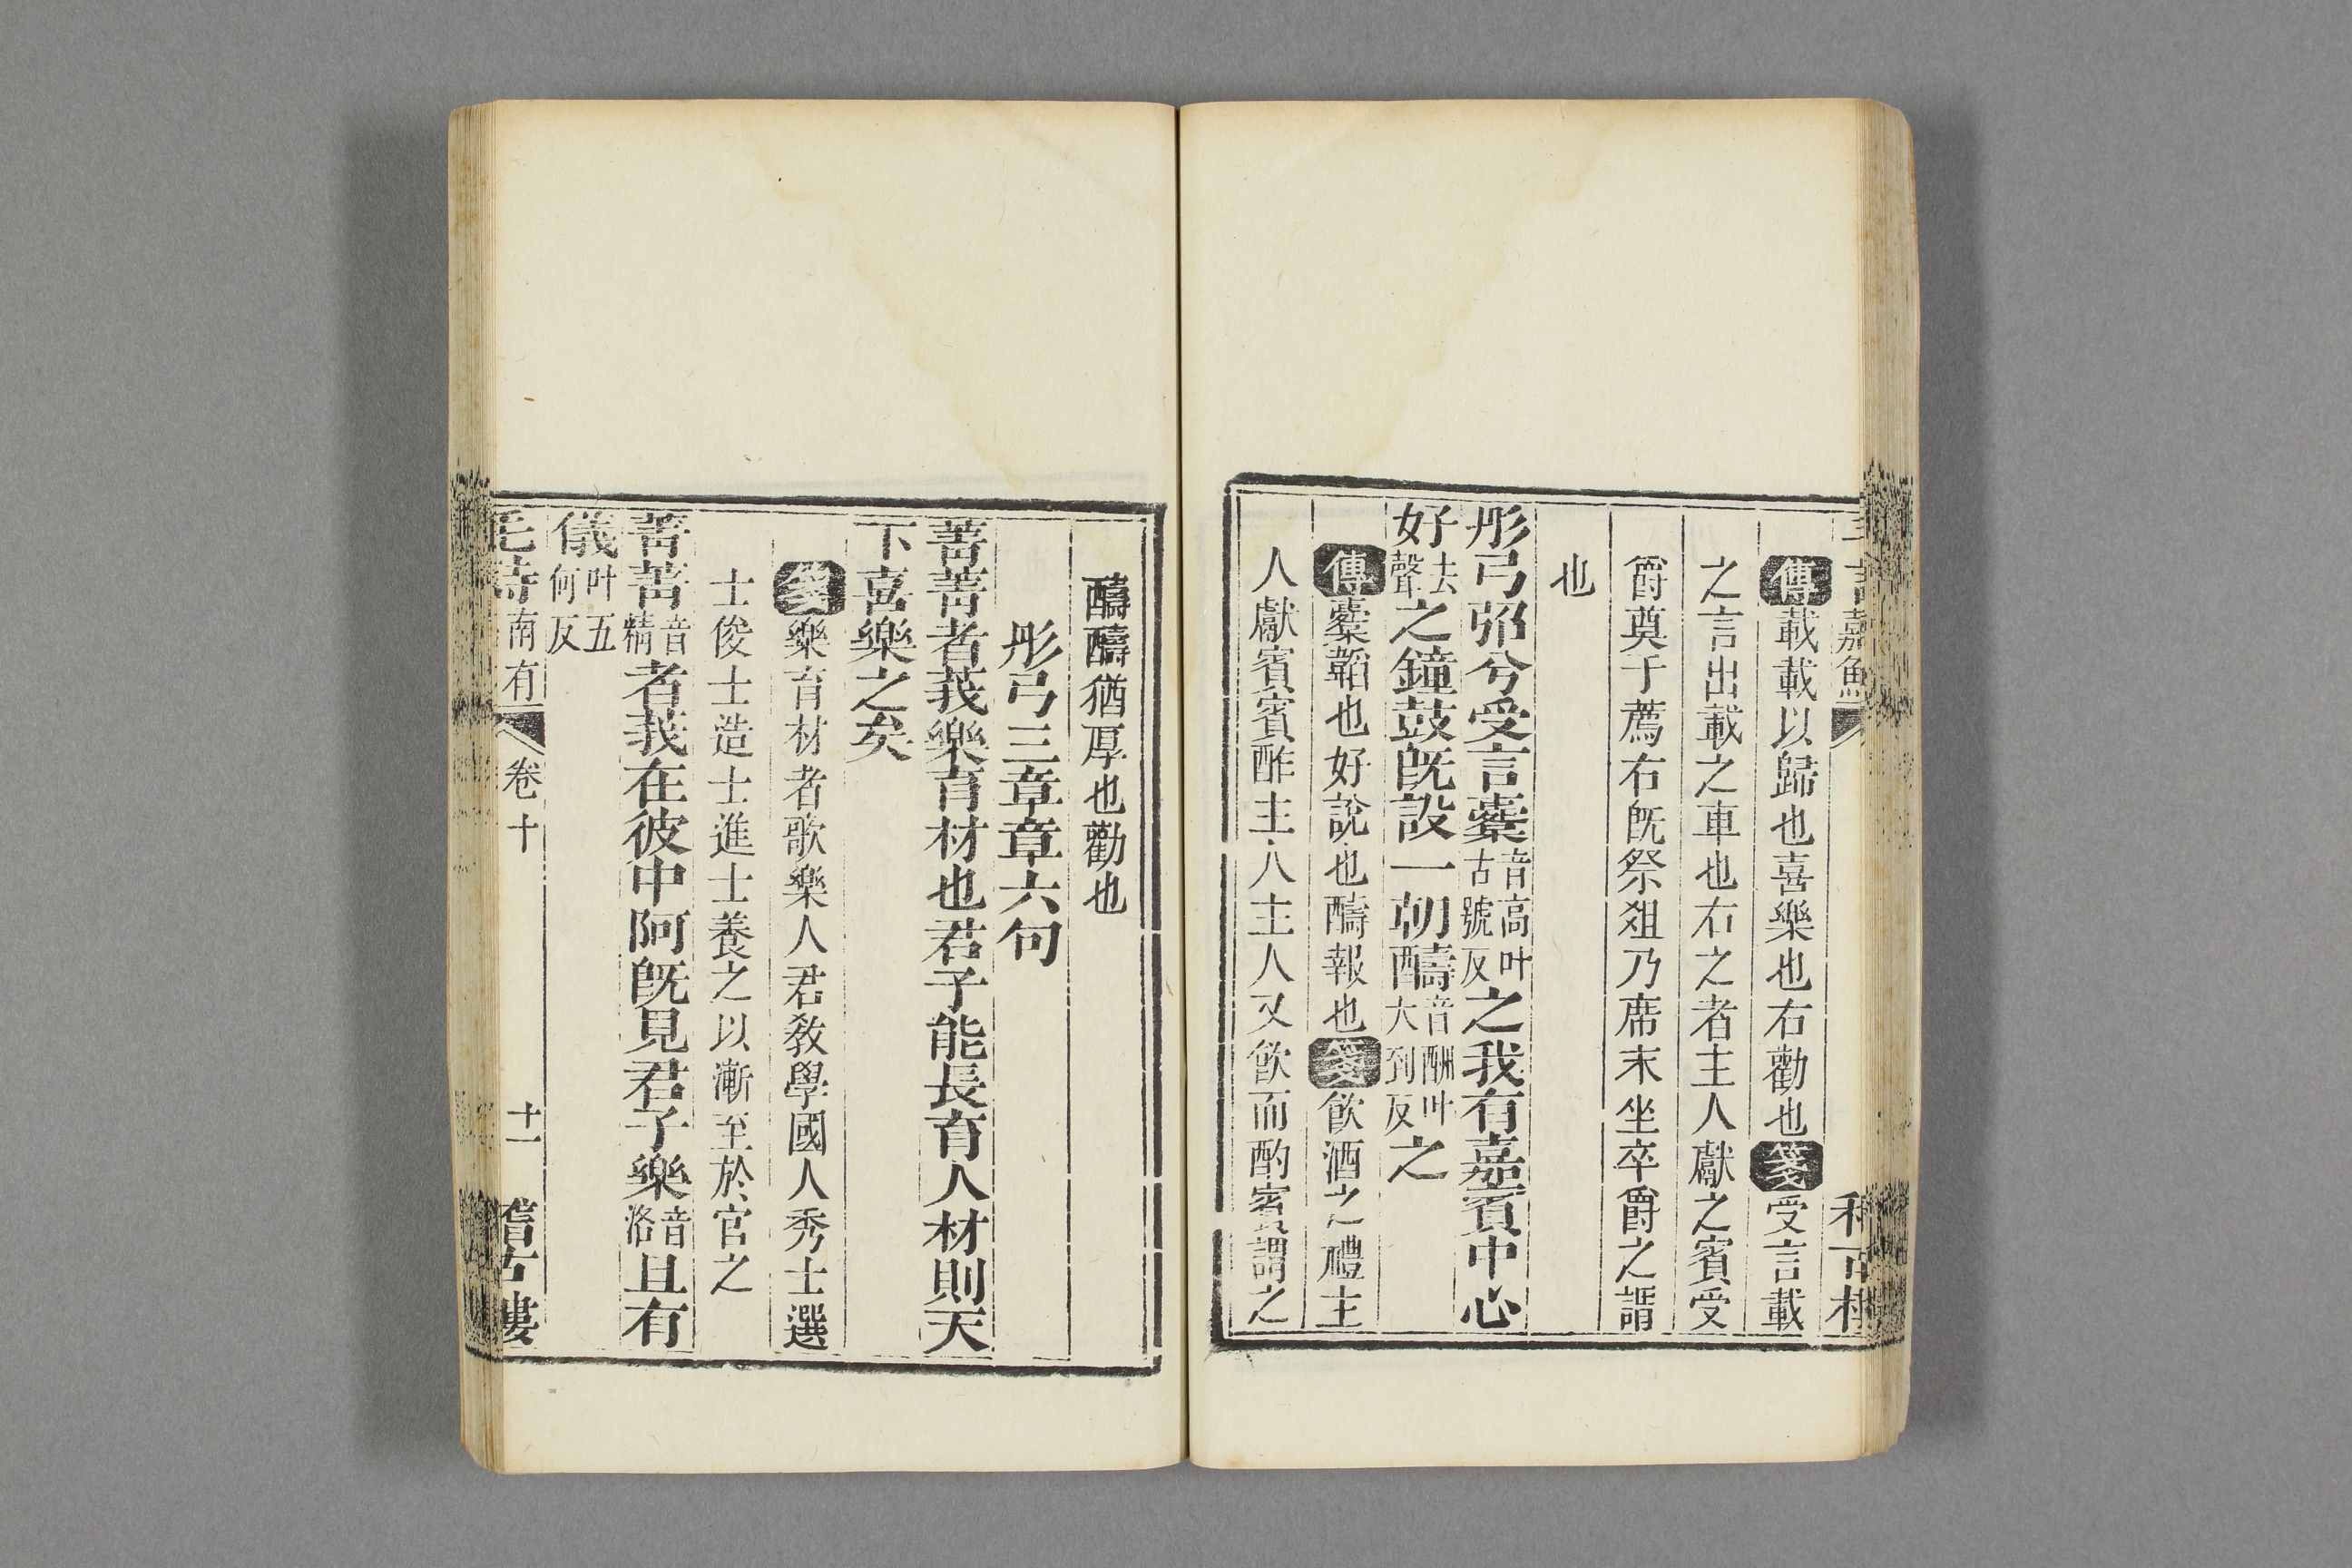 嘉魚
傳載載以歸也喜樂也右勸也箋受言載
之言出載之車也右之者主人獻之賓受
爵奠于薦右旣祭俎乃席末坐卒爵之謂
也
彤弓弨兮受言櫜音高叶古號反之我有嘉賓中心
好去聲之鐘鼓旣設一朝醻音酬叶大到反之
傳櫜韜也好說也醻報也箋飮酒之禮主
人獻賓賓酢主人主人又飮而酌賓謂之
醻醻猶厚也勸也
彤弓三章章六句
菁菁者莪樂育材也君子能長育人材則天
下喜樂之矣
箋樂育材者歌樂人君敎學國人秀士選
士俊士造士進士養之以漸至於官之
菁菁音精者莪在彼中阿旣見君子樂音洛且有
儀叶五何反
毛詩南有 卷十 十一 稽古樓